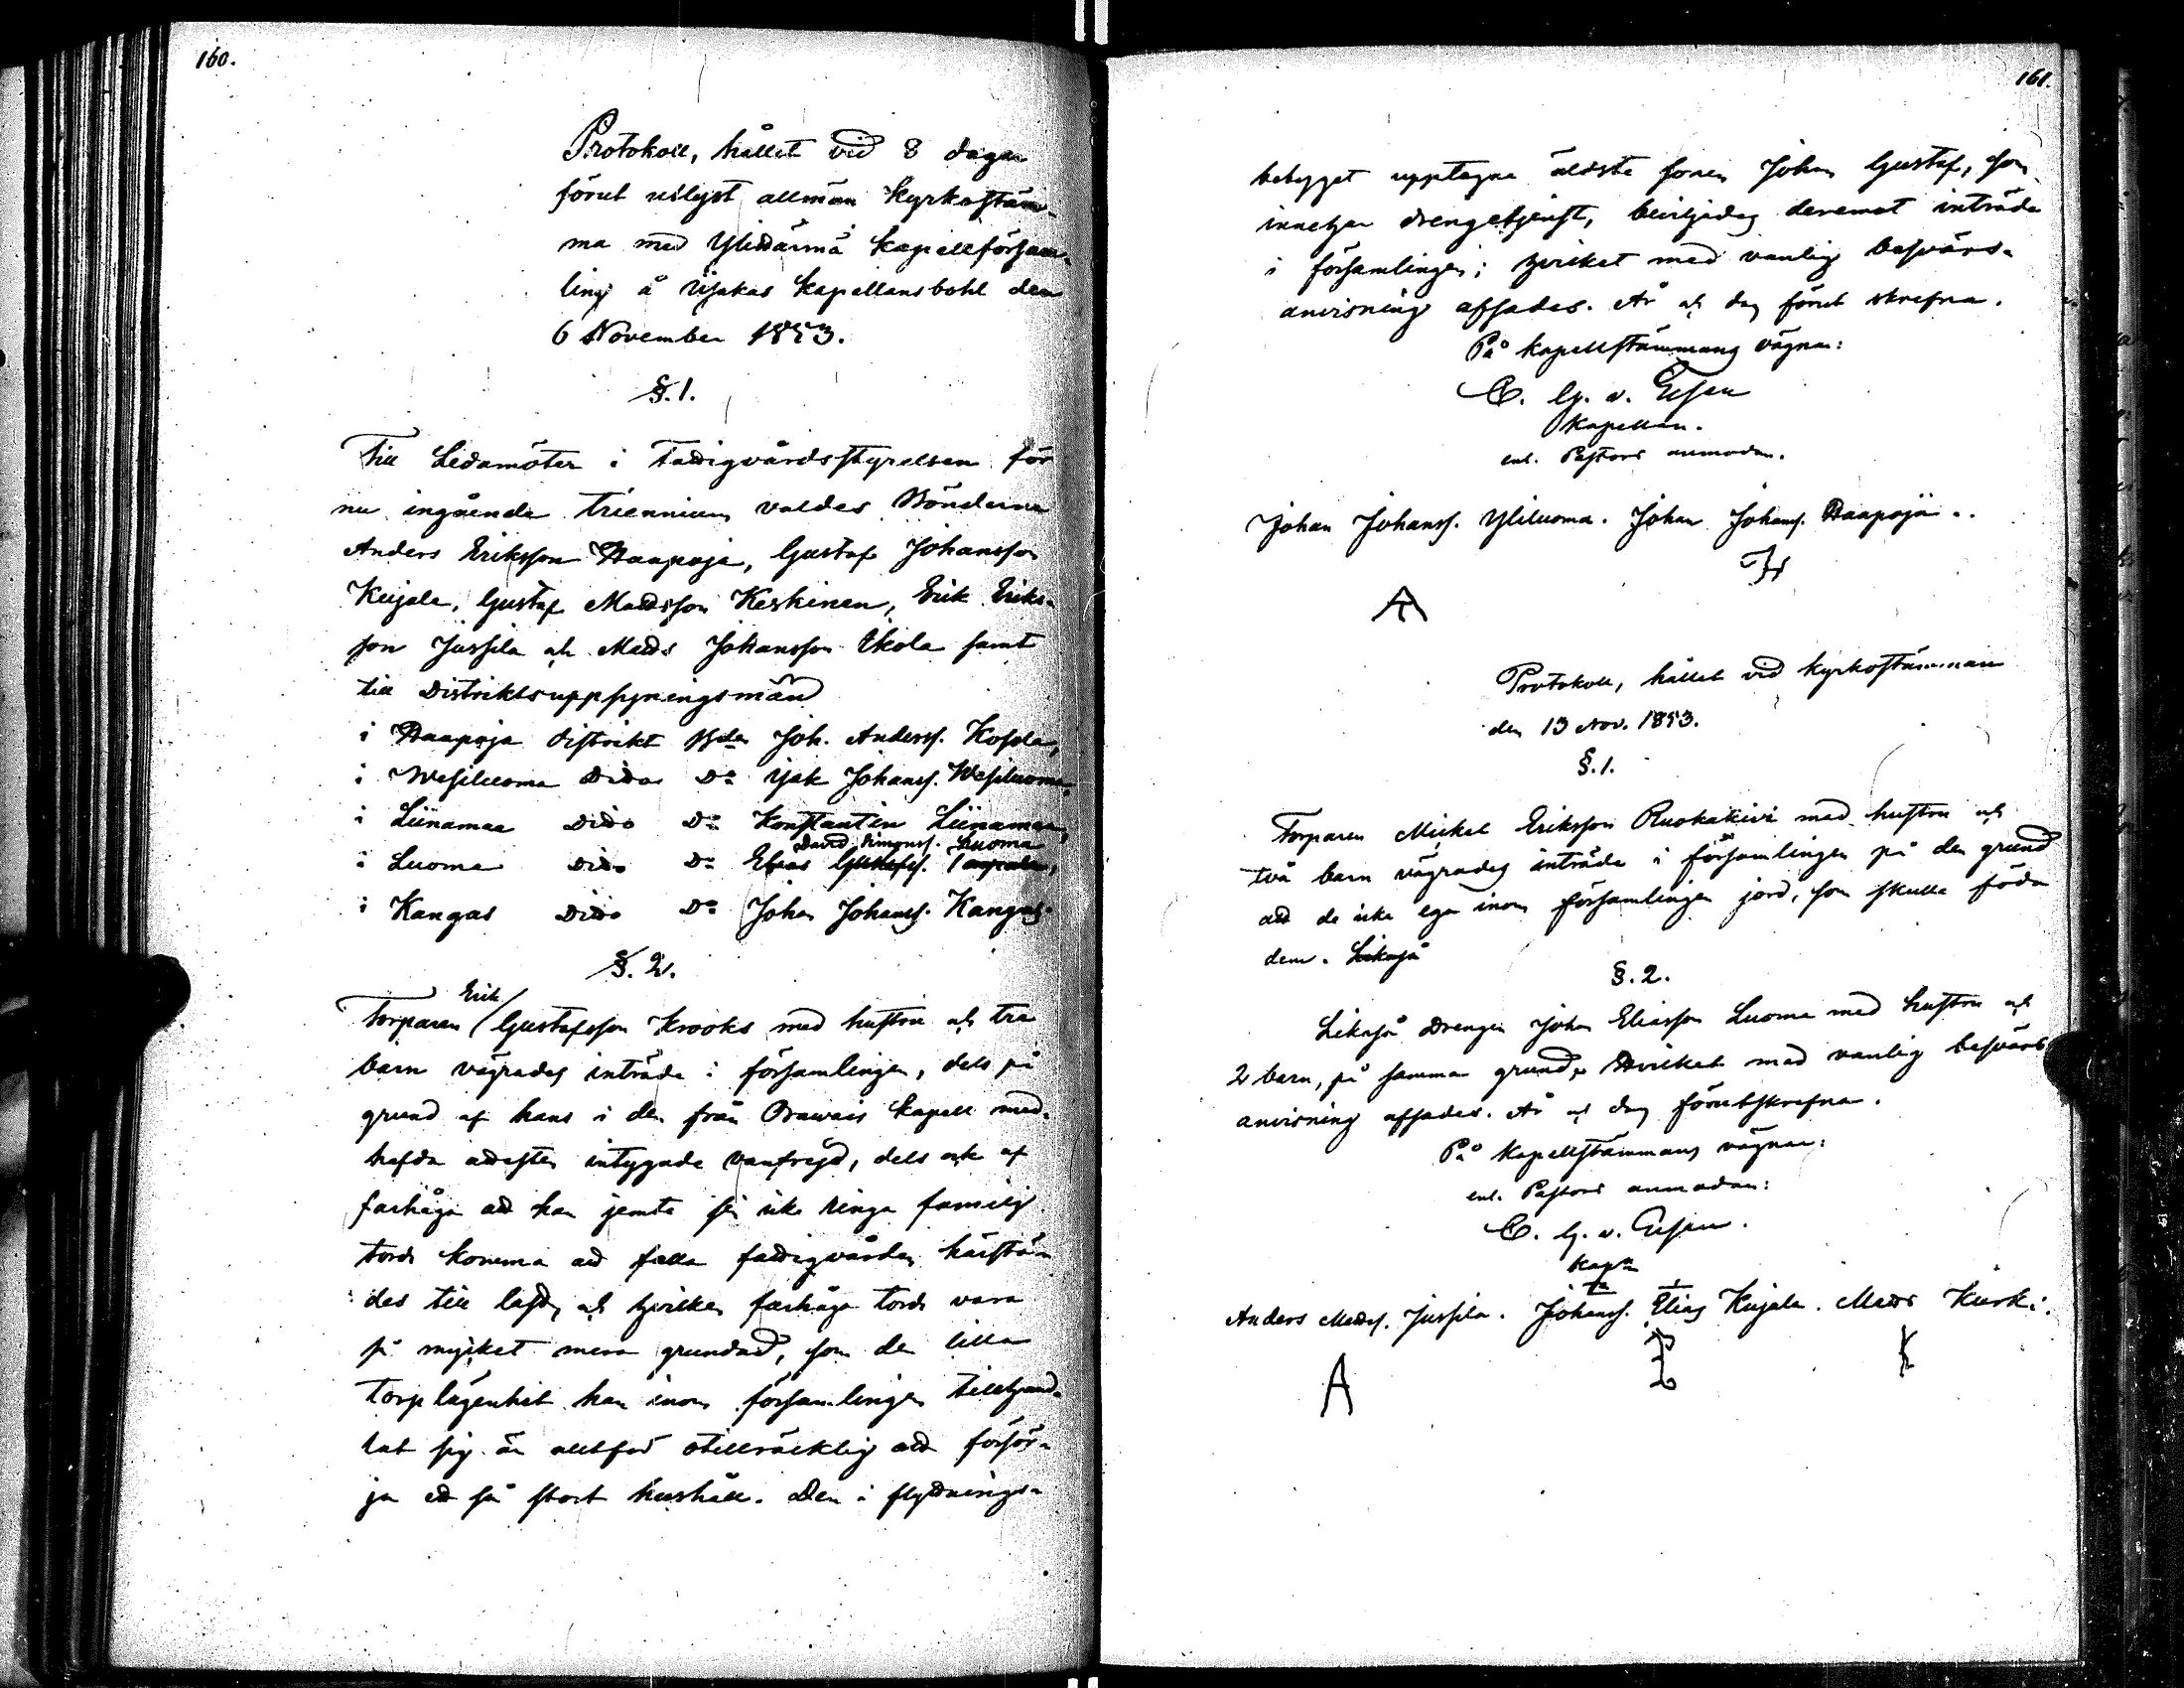 160.
Protokoll, hållet vid 8 dagar
förut utlyst allmän Kyrkostäm-
ma med Ylihärmä Kapellförsam-
ling å Ijakas Kapellansbohl den
6 November 1853.
§. 1.
Till Ledamöter i Fattigvårdsstyrelsen för
nu ingående triennium valdes Bönderne
Anders Eriksson Haapoja, Gustaf Johansson
Kujala, Gustaf Mattsson Keskinen, Erik Eriks-
son Jussila och Matts Johansson Ekola samt
till Distriktsuppsyningsmän
i Haapoja distrikt Bden Joh. Anderss. Kosola,
i Wesiluoma Dito Do Isak Johanss. Wesiluoma,
i Liinamaa Dito Do Konstantin Liinamaa,
David Simonss. Luoma
i Luoma Dito Do Elias Gustafss.
i Kangas Dito Do Johan Johanss. Kangas.
§. 2.
Erik
Torparen Gustafsson Krooks med hustru och tre
barn vägrades inträde i församlingen, dels på
grund af hans i den från Orawais Kapell med-
hafda attesten intygade vanfrejd, dels ock af
farhåga att han jemte sin icke ringa familj
torde komma att falla fattigvården härstä-
des till last, och hvilken farhåga torde vara
så mycket mera grundad, som den lilla
torplägenhet han inom församlingen tillhand-
lat sig är alltför otillräcklig att försör-
ja ett så stort hushåll. Den i flyttnings-
161.
betyget upptagne äldste sonen Johan Gustaf, som
innehar drengetjenst, beviljades deremot inträde
i församlingen; hvilket med vanlig besvärs-
anvisning afsades. År och dag förut skrefne.
På kapellstämmans vägnar:
C. G. v. Essen
Kapellan.
enl. Pastors anmodan.
Johan Johanss. Yliluoma. Johan Johanss. Haapoja.
Protokoll, hållet vid kyrkostämman
den 13 Nov. 1853.
§. 1.
Torparen Mickel Eriksson Ruokakivi med hustru och
två barn vägrades inträde i församlingen på den grund
att de icke ega inom församlingen jord, som skulle föda
dem. Likaså
§. 2.
Likaså Drengen Johan Eliasson Luoma med hustru och
2 barn, på samma grund. Hvilket med vanlig besvärs
anvisning afsades. År och dag förutskrefne.
På kapellstämmans vägnar:
enl. Pastors anmodan:
C. G. v. Essen.
Kapn
Anders Mattss. Jussila. Johanss. Elias Kujala. Matts Kurki.
A